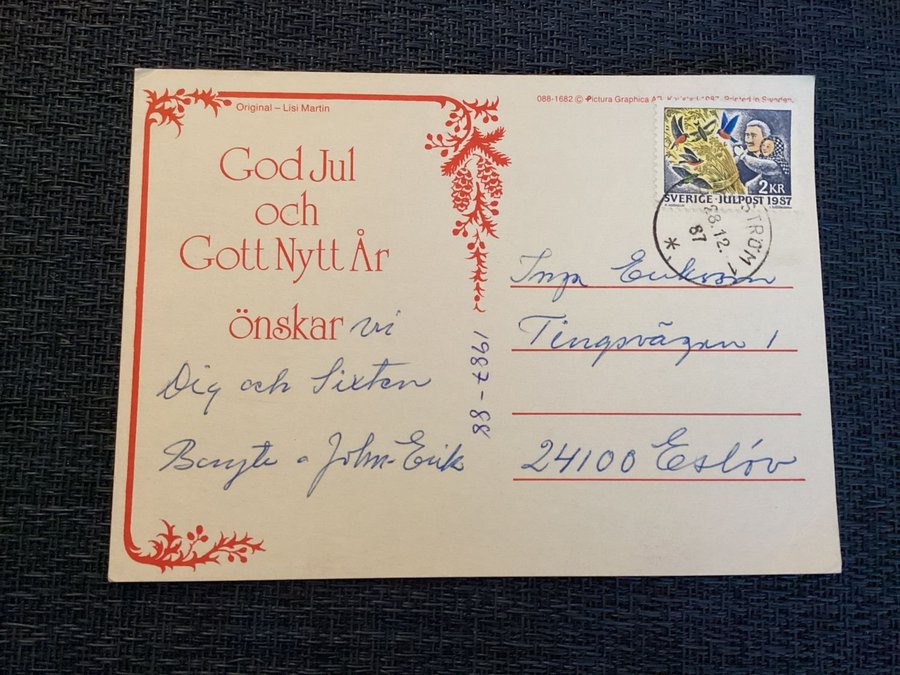 Original – Lisi Martin
088-1682 © Pictura Graphica AB, Printed in Sweden.
God Jul
och
Gott Nytt År
önskar vi
Dig och Sixten
John-Erik
1987-88
2 KR
SVERIGE · JULPOST 1987
STRÖM 1
28.12.
87
*
Inga Eriksson
Tingsvägen 1
24100 Eslöv